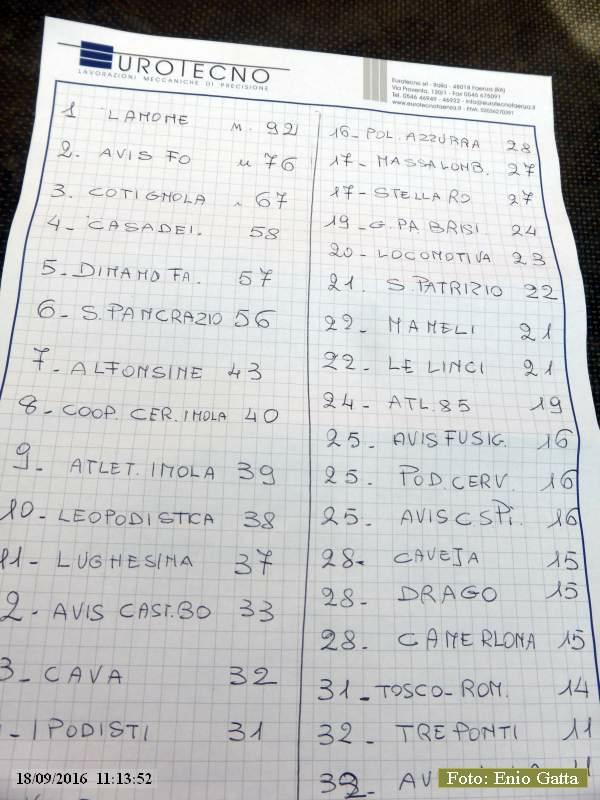 EUROTECNO
LAVORAZIONI MECCANICHE DI PRECISIONE
Eurotecno srl - Italia - 48018 Faenza (RA)
Via Proventa, 120/1 - Fax 0546 675091
Tel. 0546 46949 - 46922 - info@eurotecnofaenza.it
www.eurotecnofaenza.it
1 LAMONE M. 92
2. AVIS FO " 76
3. COTIGNOLA " 67
4- CASADEI. 58
5- DINAMO FA. 57
6- S. PANCRAZIO 56
7- ALFONSINE 43
8- COOP. CER. IMOLA 40
9- ATLET. IMOLA 39
10- LEOPODISTICA 38
11- LUGHESINA 37
2- AVIS CAST. BO 33
3- CAVA 32
- IPODISTI 31
16- POL. AZZURRA 28
17- MASSALOMB. 27
17- STELLA RO 27
19- G. PA BRISI 24
20- LOCOMOTIVA 23
21. S. PATRIZIO 22
22- MAMELI 21
22- LE LINCI 21
24- ATL. 85 19
25- AVIS FUSIG. 16
25. POD. CERV. 16
25. AVIS CSPI. 16
28- CAVEJA 15
28- DRAGO 15
28. CAMERLONA 15
31- TOSCO-ROM. 14
32- TRE PONTI 11
32- AV
18/09/2016 11:13:52
Foto: Enio Gatta